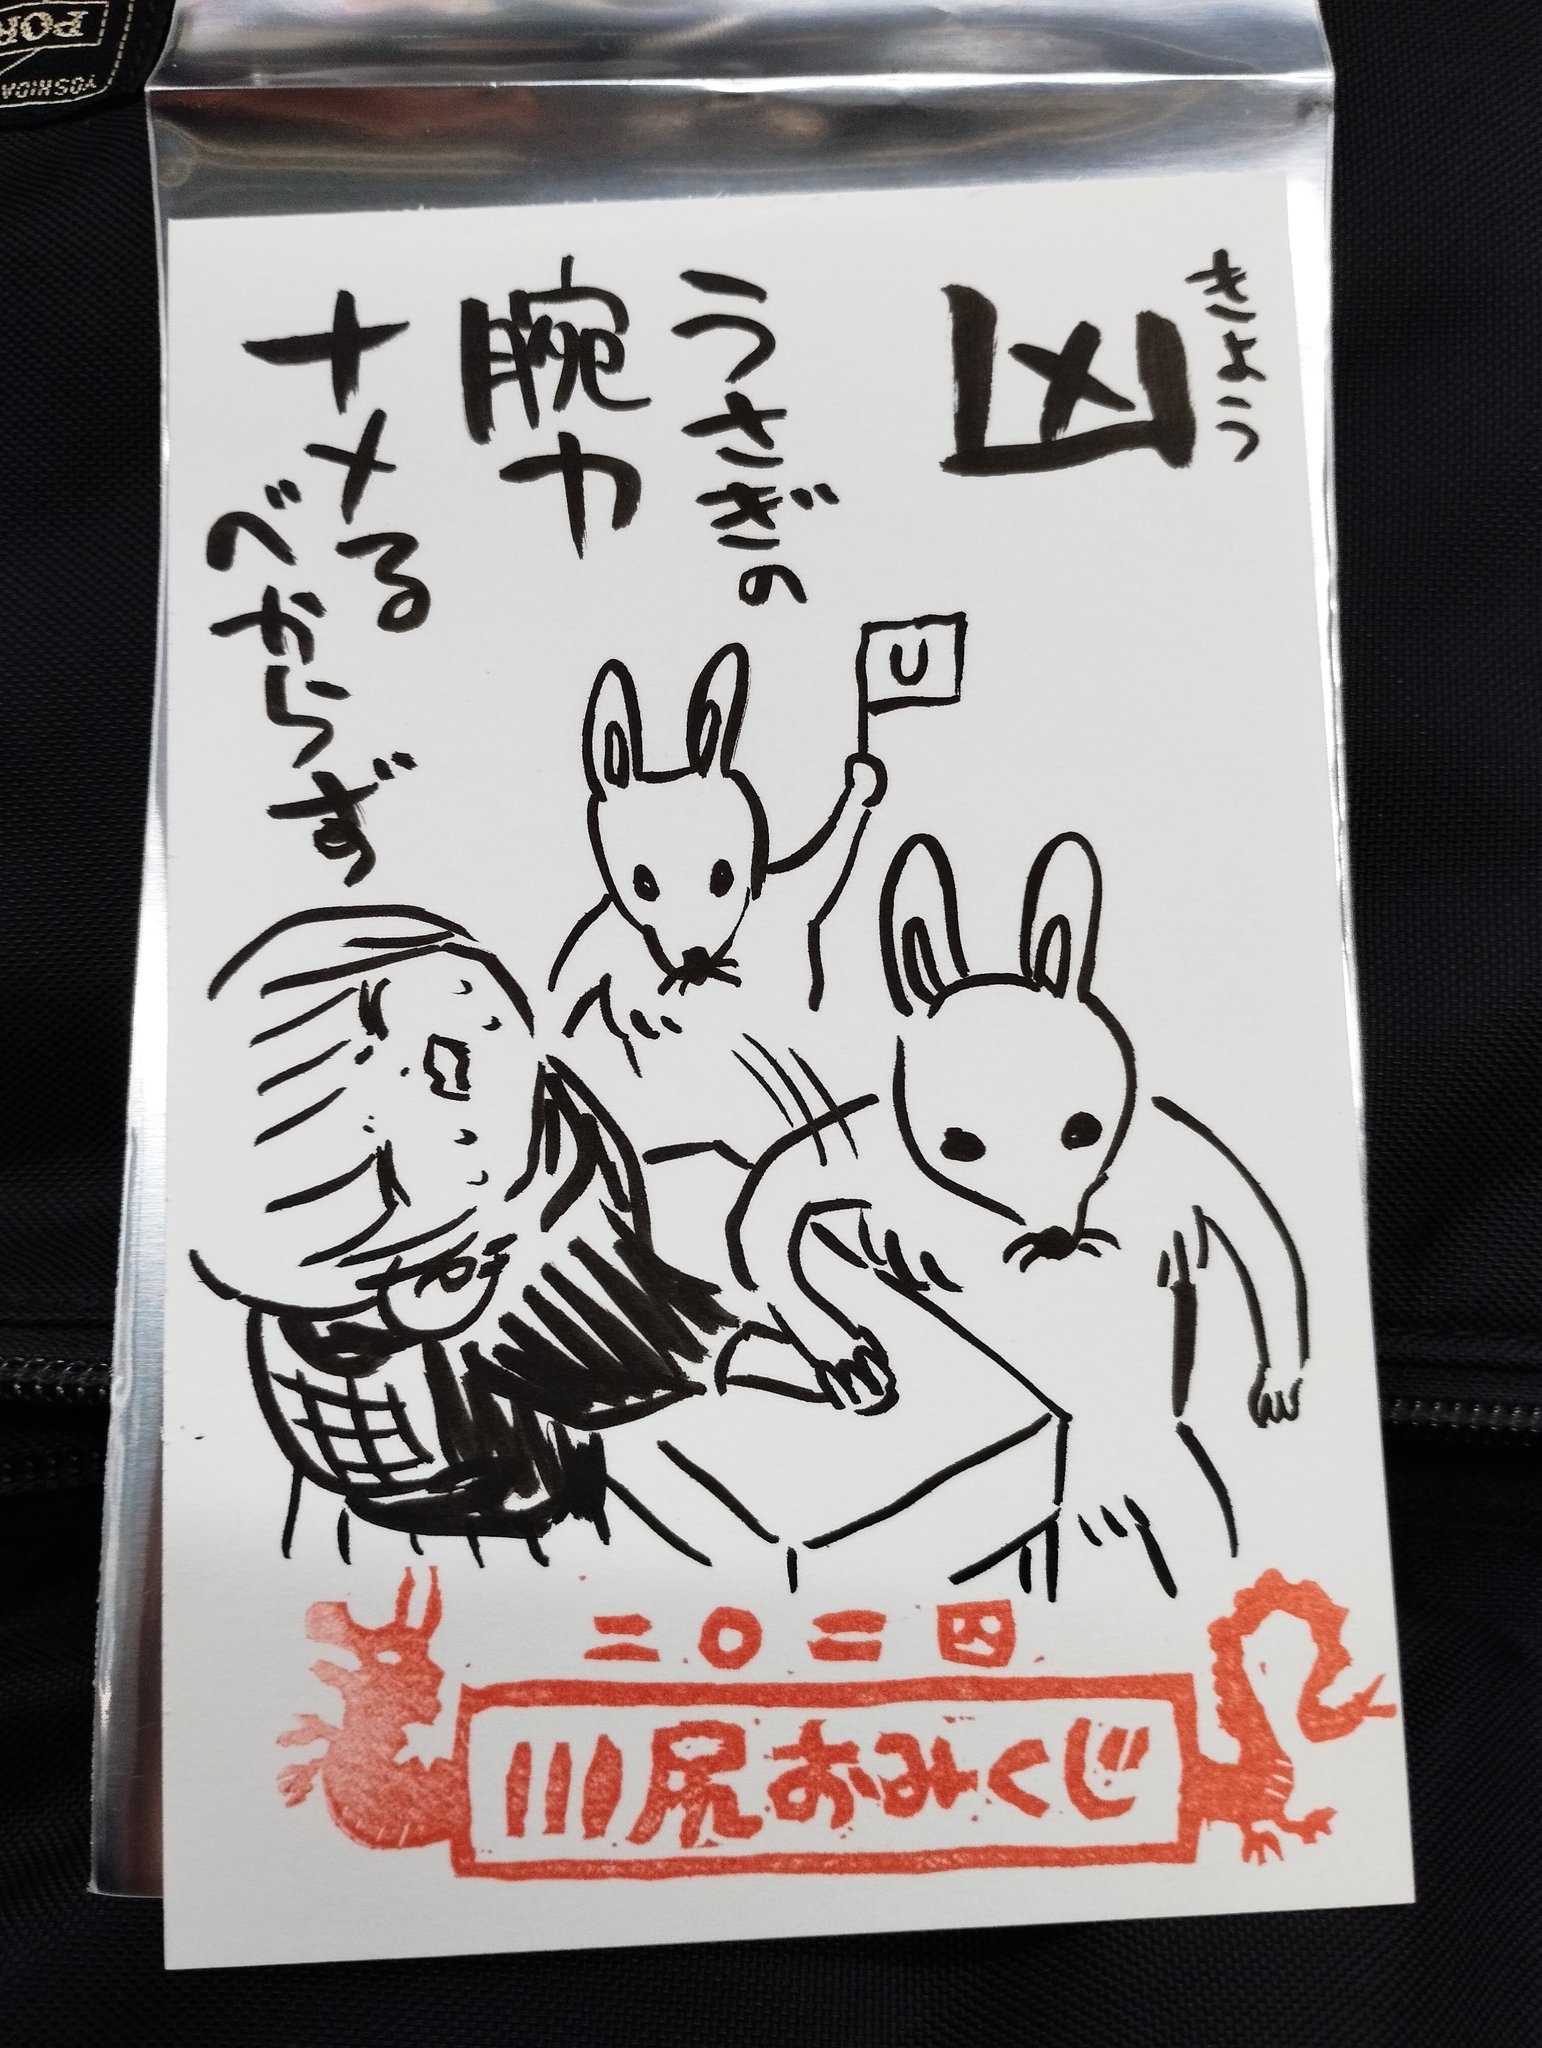 きょう
凶
うさぎの
腕力
ナメる
べからず
U
二〇二四
川尻おみくじ
POR
YOSHIDA